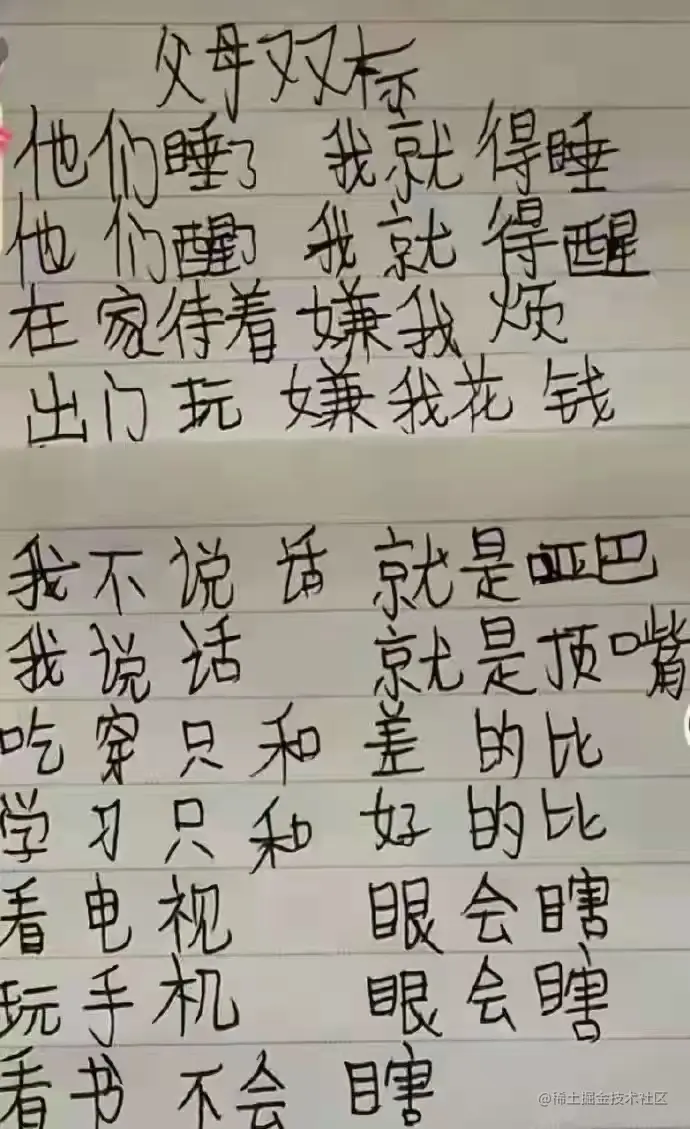 父母双标
他们睡了 我就得睡
他们醒了 我就得醒
在家待着 嫌我烦
出门玩 嫌我花钱
我不说话 就是哑巴
我说话 就是顶嘴
吃穿只和差的比
学习只和好的比
看电视 眼会瞎
玩手机 眼会瞎
看书不会瞎
@稀土掘金技术社区